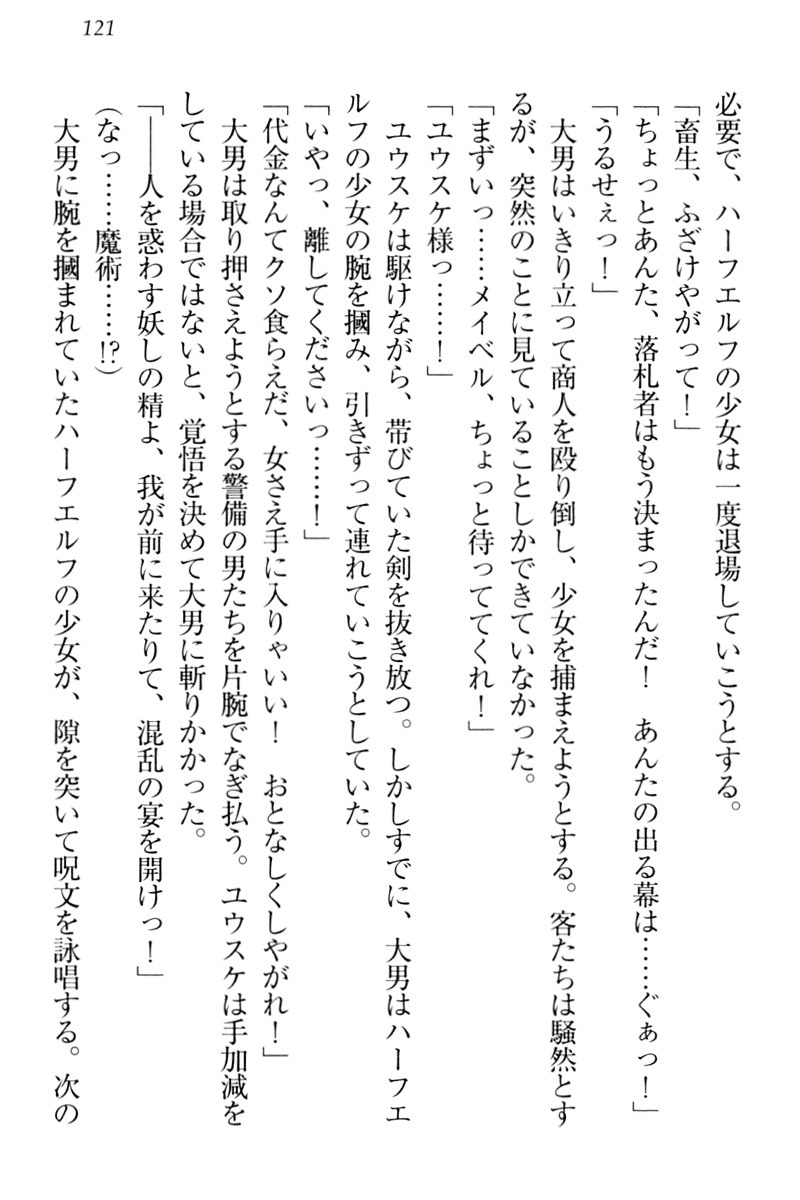 121
必要で、ハーフエルフの少女は一度退場していこうとする。
「畜生、ふざけやがって！」
「ちょっとあんた、落札者はもう決まったんだ！　あんたの出る幕は……ぐぁっ！」
「うるせぇっ！」
　大男はいきり立って商人を殴り倒し、少女を捕まえようとする。客たちは騒然とす
るが、突然のことに見ていることしかできていなかった。
「まずいっ……メイベル、ちょっと待っててくれ！」
「ユウスケ様っ……！」
　ユウスケは駆けながら、帯びていた剣を抜き放つ。しかしすでに、大男はハーフエ
ルフの少女の腕を摑み、引きずって連れていこうとしていた。
「いやっ、離してくださいっ……！」
「代金なんてクソ食らえだ、女さえ手に入りゃいい！　おとなしくしやがれ！」
　大男は取り押さえようとする警備の男たちを片腕でなぎ払う。ユウスケは手加減を
している場合ではないと、覚悟を決めて大男に斬りかかった。
「――人を惑わす妖しの精よ、我が前に来たりて、混乱の宴を開けっ！」
（なっ……魔術……!?）
　大男に腕を摑まれていたハーフエルフの少女が、隙を突いて呪文を詠唱する。次の